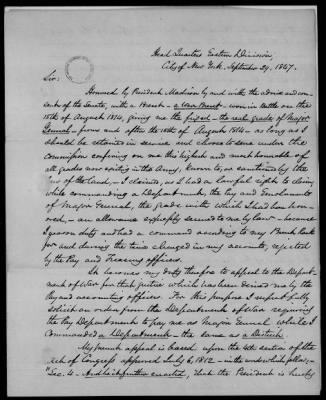 Head Quarters Eastern Division,
City of New York, September 29, 1847.
Sir:
Honored by President Madison by and with the advice and con-
sent of the Senate, with a Brevet — a War Brevet — won in battle on the
15th of August 1814, giving me the full — the real grade of Major
General — from and after the 15th of August 1814 — as long as I
should be retained in service and chose to serve under the
Commission conferring on me this highest and most honorable of
all grades now existing in the Army, known to, or sanctioned by the
law of the land, I claimed, as I had a lawful right to claim
while commanding a Department, the pay and Emoluments
of Major General, the grade with which I had been hon-
ored, — an allowance expressly secured to me by law — because
I was on duty and had a command according to my Brevet Rank
for and during the time charged in my accounts, rejected
by the Pay and Treasury officers.
It becomes my duty therefore to appeal to the Depart-
ment of War for that justice which has been denied me by the
Pay and accounting officers. For this purpose I respectfully
solicit an order from the Department of War requiring
the Pay Department to pay me as Major General while I
Commanded a Department — the same as a District.
My present appeal is based upon the 4th section of the
act of Congress approved July 6, 1812 — in the words which follow, —
"Sec. 4 — And be it further enacted, That the President is hereby